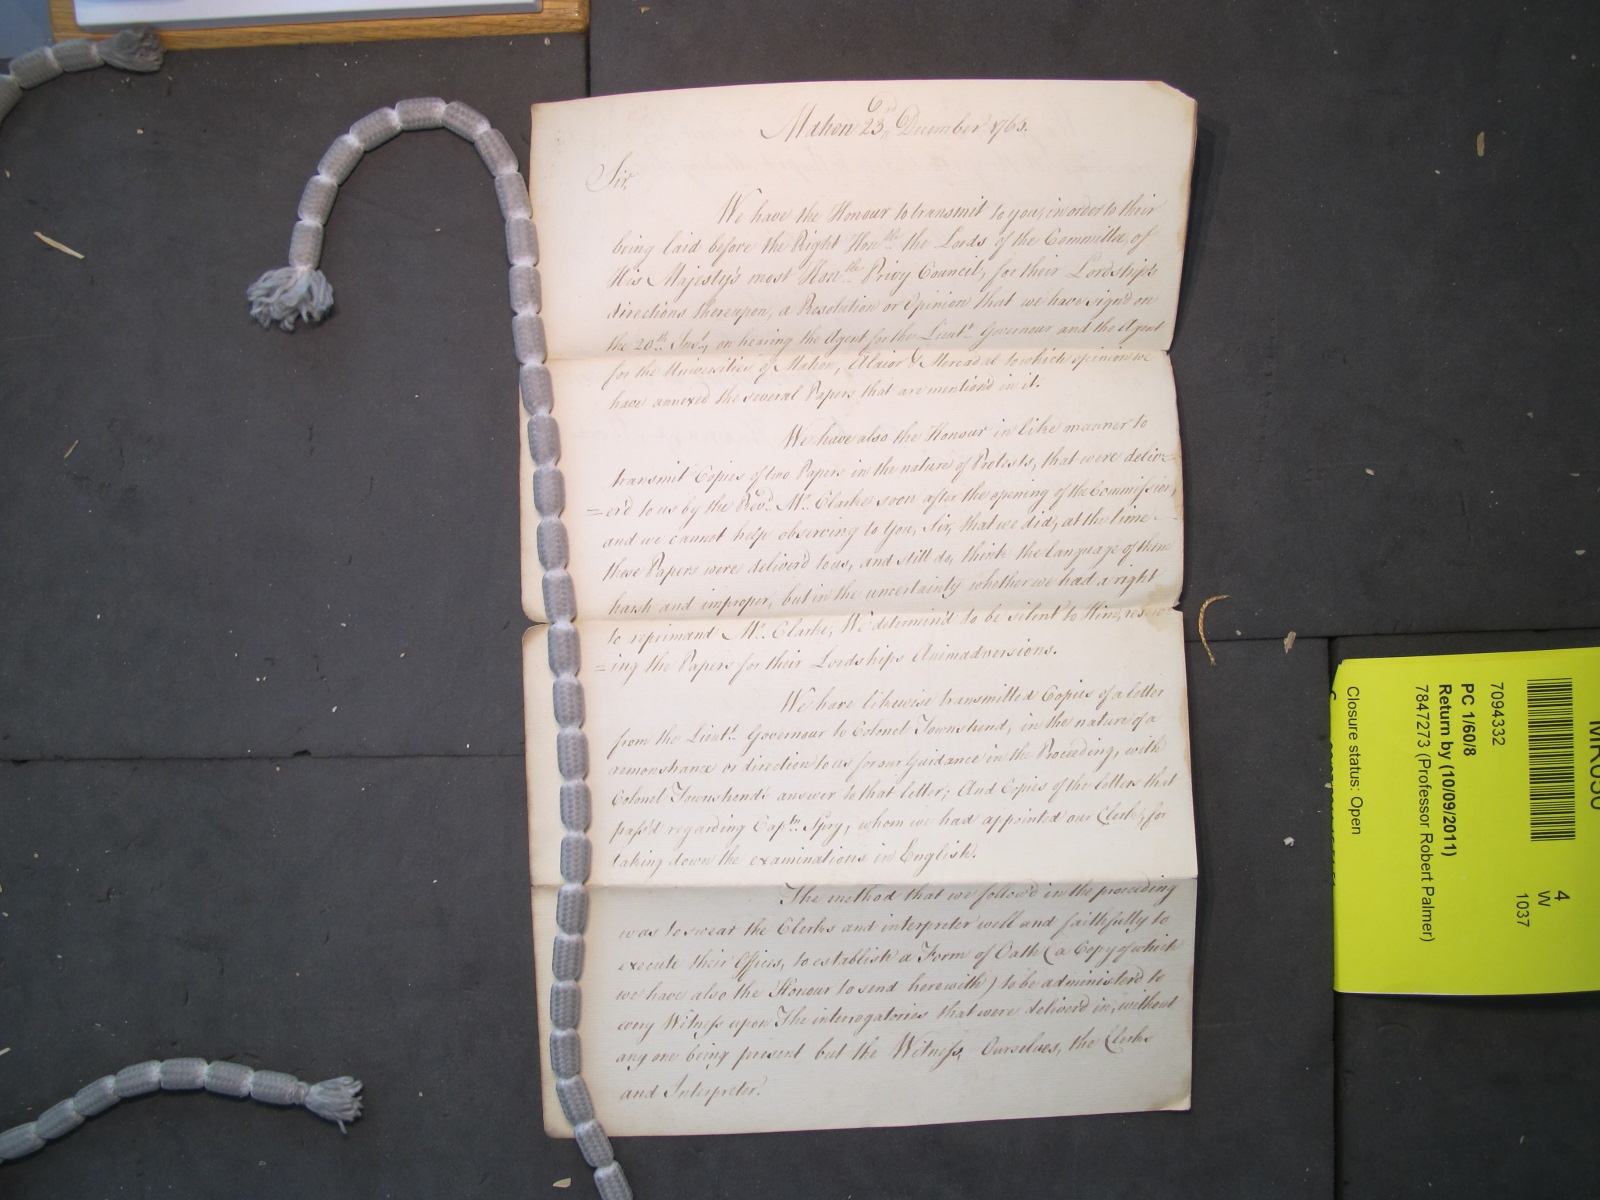 Mahon 23d December 1765.
Sir,
We have the Honour to transmit to you, in order to their
being laid before the Right Honble the Lords of the Committee, of
His Majesty's most Honble Privy Council, for their Lordships
directions thereupon, a Resolution or Opinion that we have sign'd on
the 20th Inst, on hearing the Agent for the Lieut. Governour and the Agent
for the Universities of Mahon, Alaior & Mercadal to which opinion we
have annexed the several Papers that are mention'd in it.
We have also the Honour in like manner to
transmit Copies of two Papers in the nature of Protests, that were deliver
=er'd to us by the Revd. Mr. Clarke soon after the opening of the Commission,
and we cannot help observing to You, Sir, that we did, at the time
these Papers were deliver'd to us, and still do, think the language of them
harsh and improper, but in the uncertainty whether we had a right
to reprimand Mr. Clarke, We determin'd to be silent to Him, reserv
=ing the Papers for their Lordships Animadversions.
We have likewise transmitted Copies of a letter
from the Lieut. Governour to Colonel Townshend, in the nature of a
remonstrance or direction to us for our Guidance in the Proceeding, with
Colonel Townshend's answer to that letter; And Copies of the letters that
pass'd regarding Captn. Spry, whom we had appointed our Clerk, for
taking down the examinations in English.
The method that we follow'd in the proceeding
was to swear the Clerks and interpreter well and faithfully to
execute their Offices, to establish a Form of Oath (a Copy of which
we have also the Honour to send herewith) to be administer'd to
every Witness upon The interrogatories that were deliver'd in, without
any one being present but the Witness, Ourselves, the Clerks
and Interpreter.
7094332
PC 1/60/8
Return by (10/09/2011)
7847273 (Professor Robert Palmer)
Closure status: Open
4
W
1037